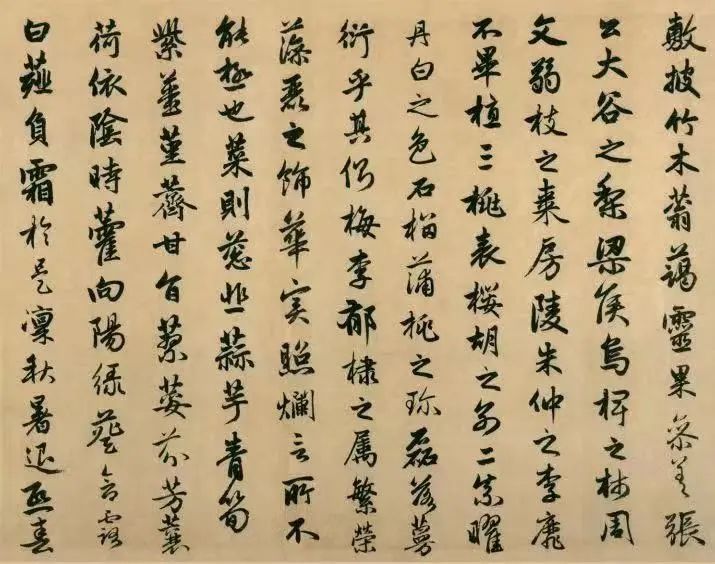 敷披竹木蓊藹靈果參差張
公大谷之梨梁侯烏椑之柿周
文弱枝之棗房陵朱仲之李靡
不畢植三桃表櫻胡之別二柰曜
丹白之色石榴蒲桃之珍磊落蔓
衍乎其側梅李郁棣之屬繁榮
藻麗之飾華實照爛言所不
能極也菜則葱韭蒜芋青筍
紫薑堇薺甘旨蓼荾芬芳蘘
荷依陰時藿向陽綠葵含露
白薤負霜於是凜秋暑退熙春